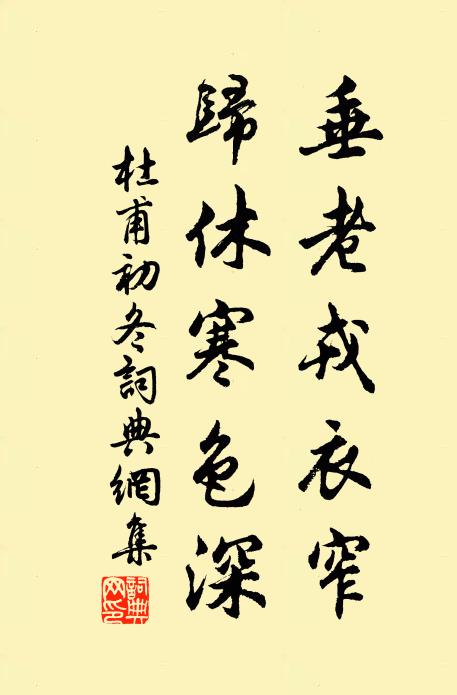 垂老戎衣窄
歸休寒色深
杜甫初冬詞典網集
詞典網印